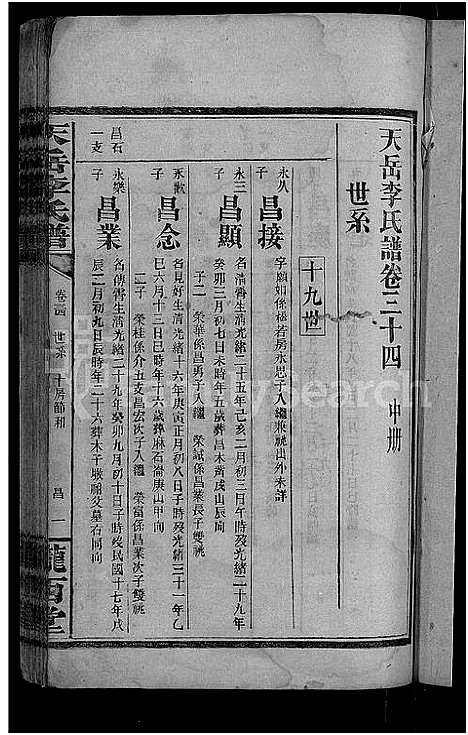 天岳李氏譜卷三十四 中册
世系
十九世
永八
子
昌接
字願如係慈若房永思子入繼兼祧出外未詳
永三
子
昌顯
名清霄生清光緒二十五年己亥二月初三日午時歿光緒二十九年
癸卯三月初七日未時年五歲葬昌木黄戌山辰向
子二 榮華係昌勇子入繼 榮誠係昌業長子雙祧
永猷
子
昌念
名見好生清光緒十六年庚寅正月初八日子時歿光緒三十一年乙
巳六月十二日巳時年十六歲葬麻石崙庚山甲向
二子 榮桂係介五支昌宏次子入繼 榮富係昌業次子雙祧
永樂
子
昌業
名傳霄生清光緒二十九年癸卯九月初十日子時歿民國十七年戊
辰二月初九日辰時年二十六葬木干墩祖父墓右同向
昌石
一支
天岳李氏譜
世系
十房節和
昌
一
隴西堂